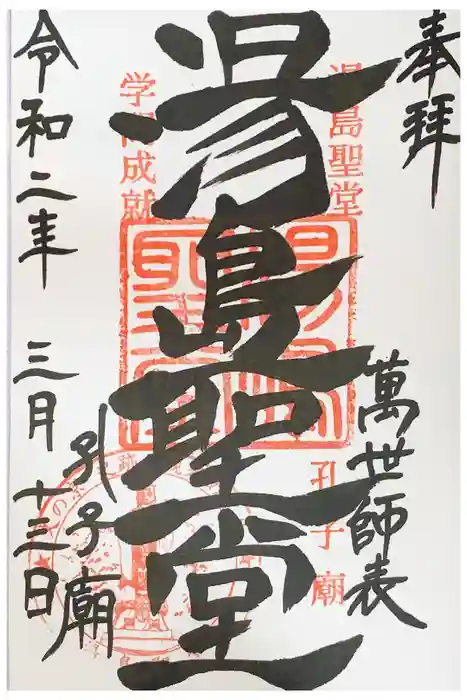 奉拝
萬世師表
湯島聖堂
孔子廟
湯島聖堂
学問成就
孔子廟
令和二年 三月十三日